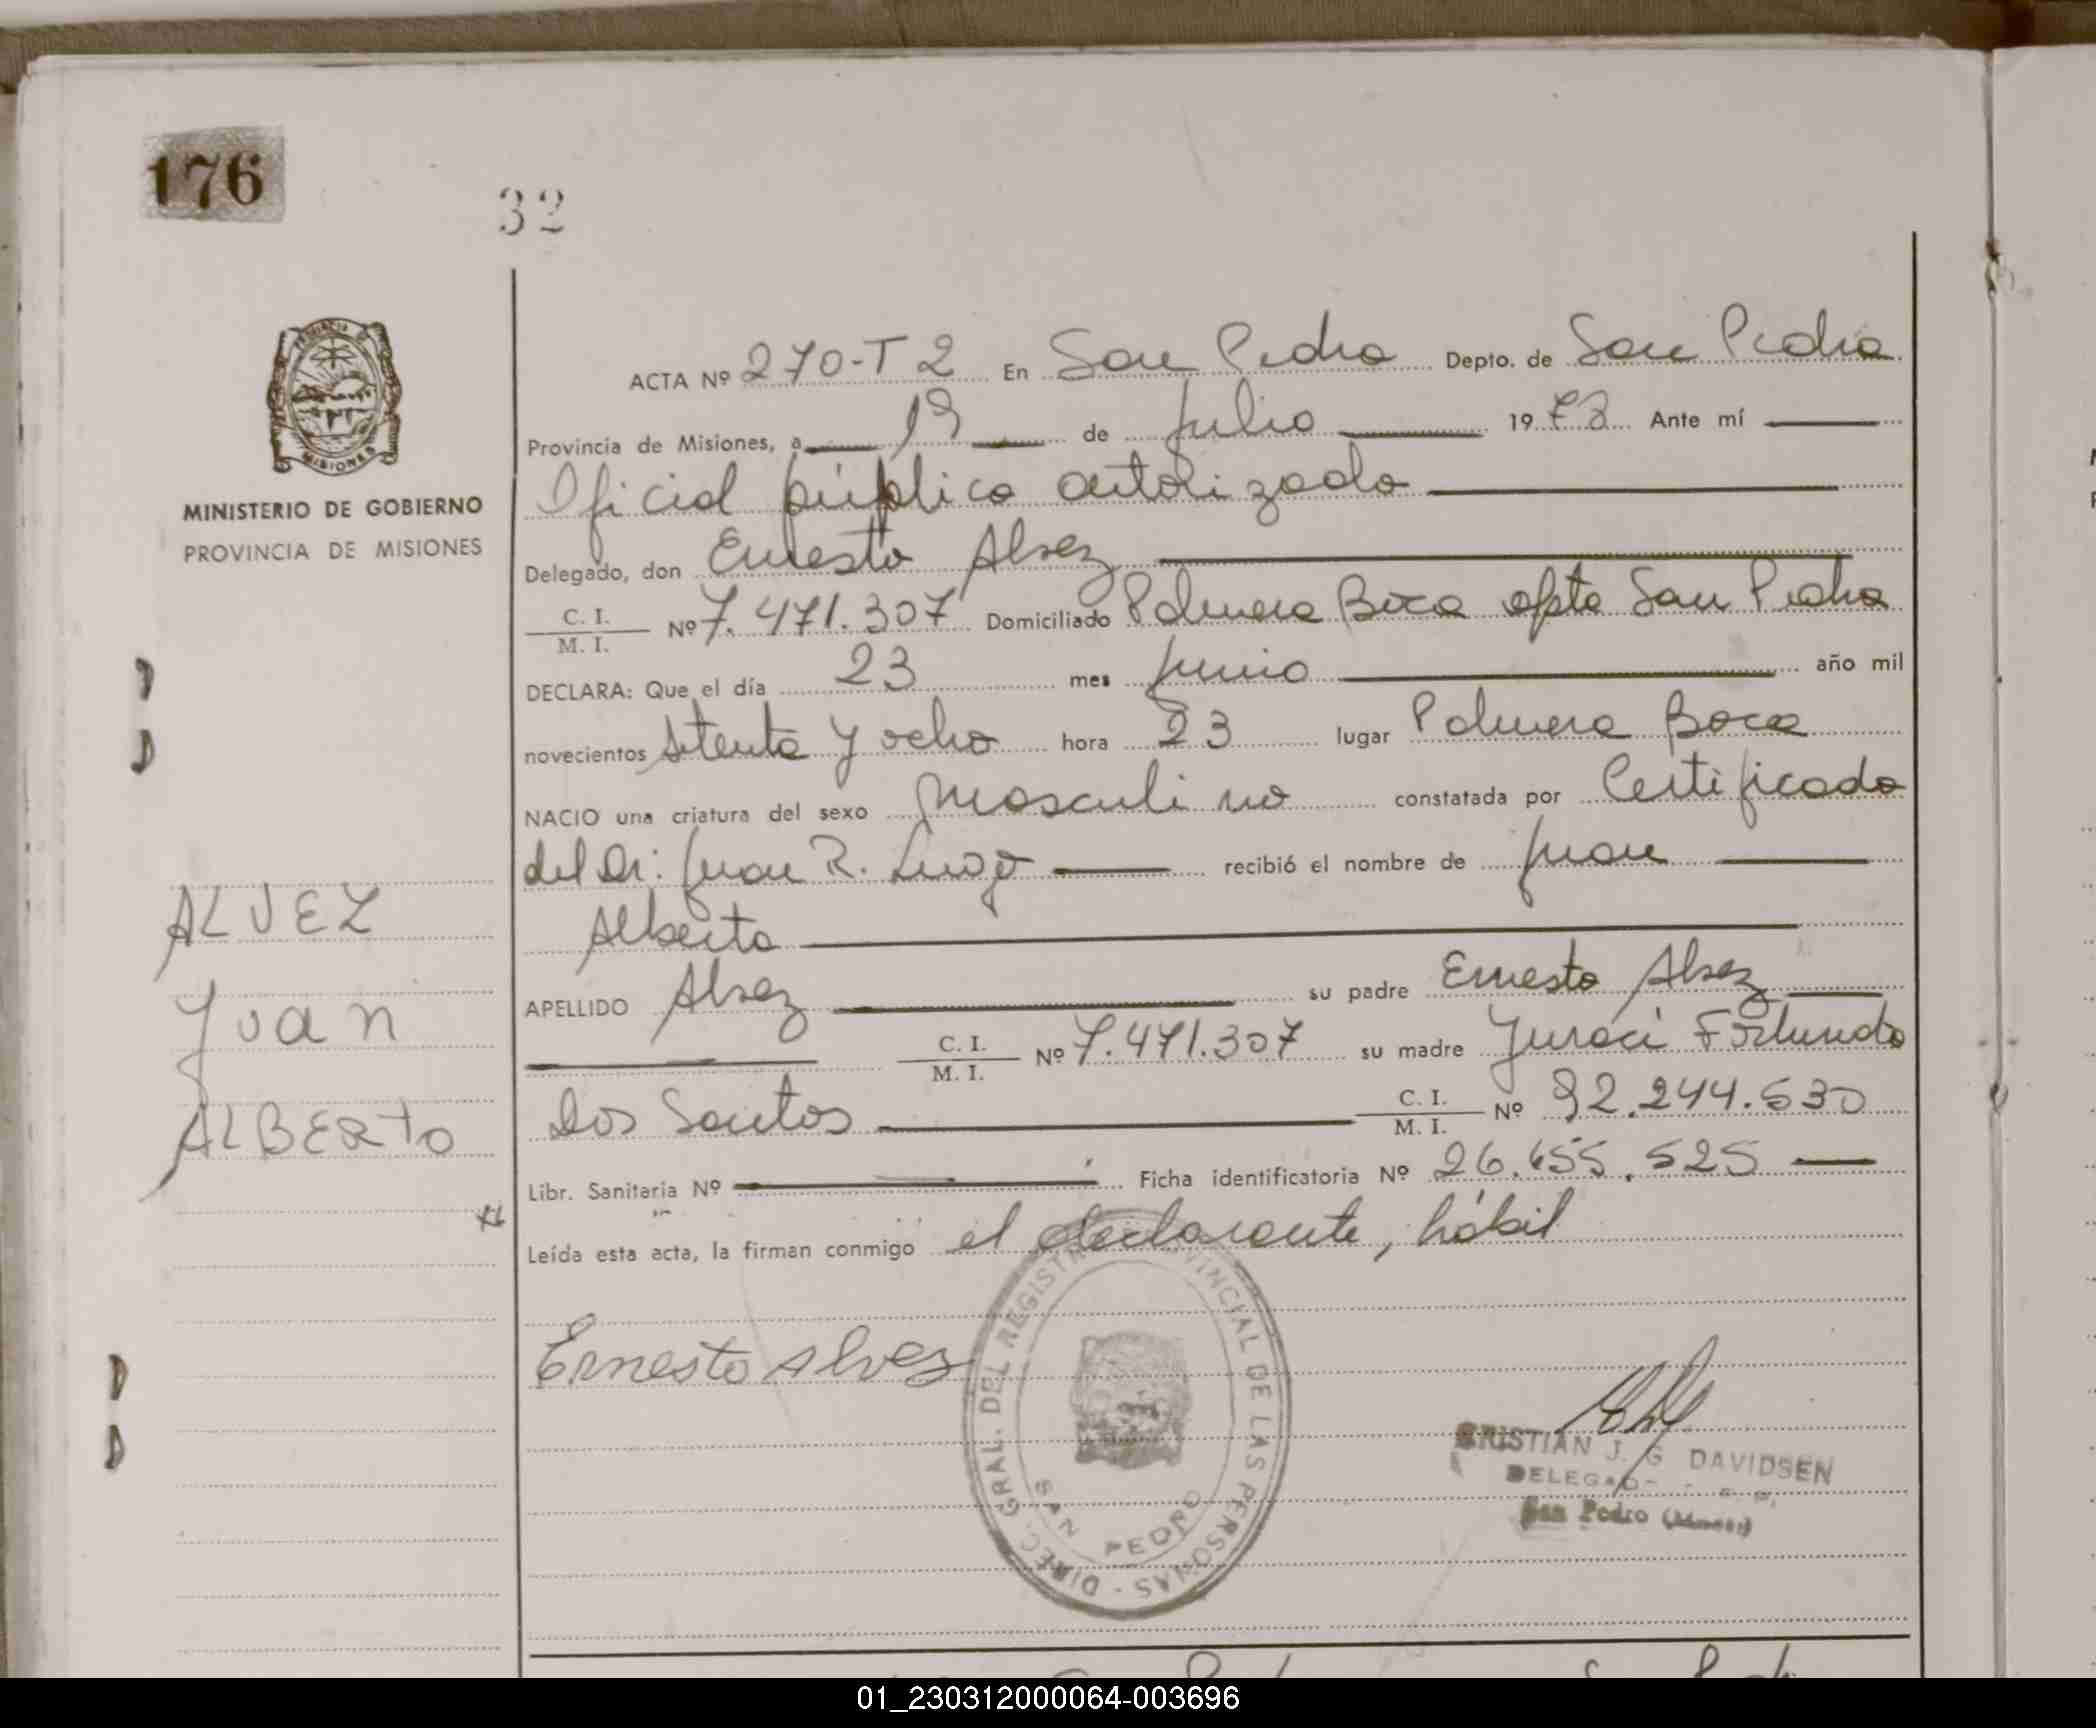 176
32
ACTA Nº 270-T 2 En San Pedro Depto. de San Pedro
Provincia de Misiones, a 19 de Julio 1978 Ante mí
Oficial público autorizado
MINISTERIO DE GOBIERNO
PROVINCIA DE MISIONES
Delegado, don Ernesto Alvez
C. I.
M. I. Nº 7.471.307 Domiciliado Palmera Boca dpto San Pedro
DECLARA: Que el día 23 mes Junio año mil
novecientos setenta y ocho hora 23 lugar Palmera Boca
NACIO una criatura del sexo masculino constatada por Certificado
del Dr: Juan R. Lugo recibió el nombre de Juan
Alberto
ALVEZ
Juan
ALBERTO
APELLIDO Alvez su padre Ernesto Alvez
C. I.
M. I. Nº 7.471.307 su madre Juraci Fortunato
Dos Santos C. I.
M. I. Nº 92.244.630
Libr. Sanitaria Nº Ficha identificatoria Nº 26.655.525
Leída esta acta, la firman conmigo el declarante, hábil
Ernesto Alvez
DIREC. GRAL. DEL REGISTRO PROVINCIAL DE LAS PERSONAS
SAN PEDRO
CRISTIAN J. G DAVIDSEN
DELEGADO
San Pedro (Mnes)
01_230312000064-003696